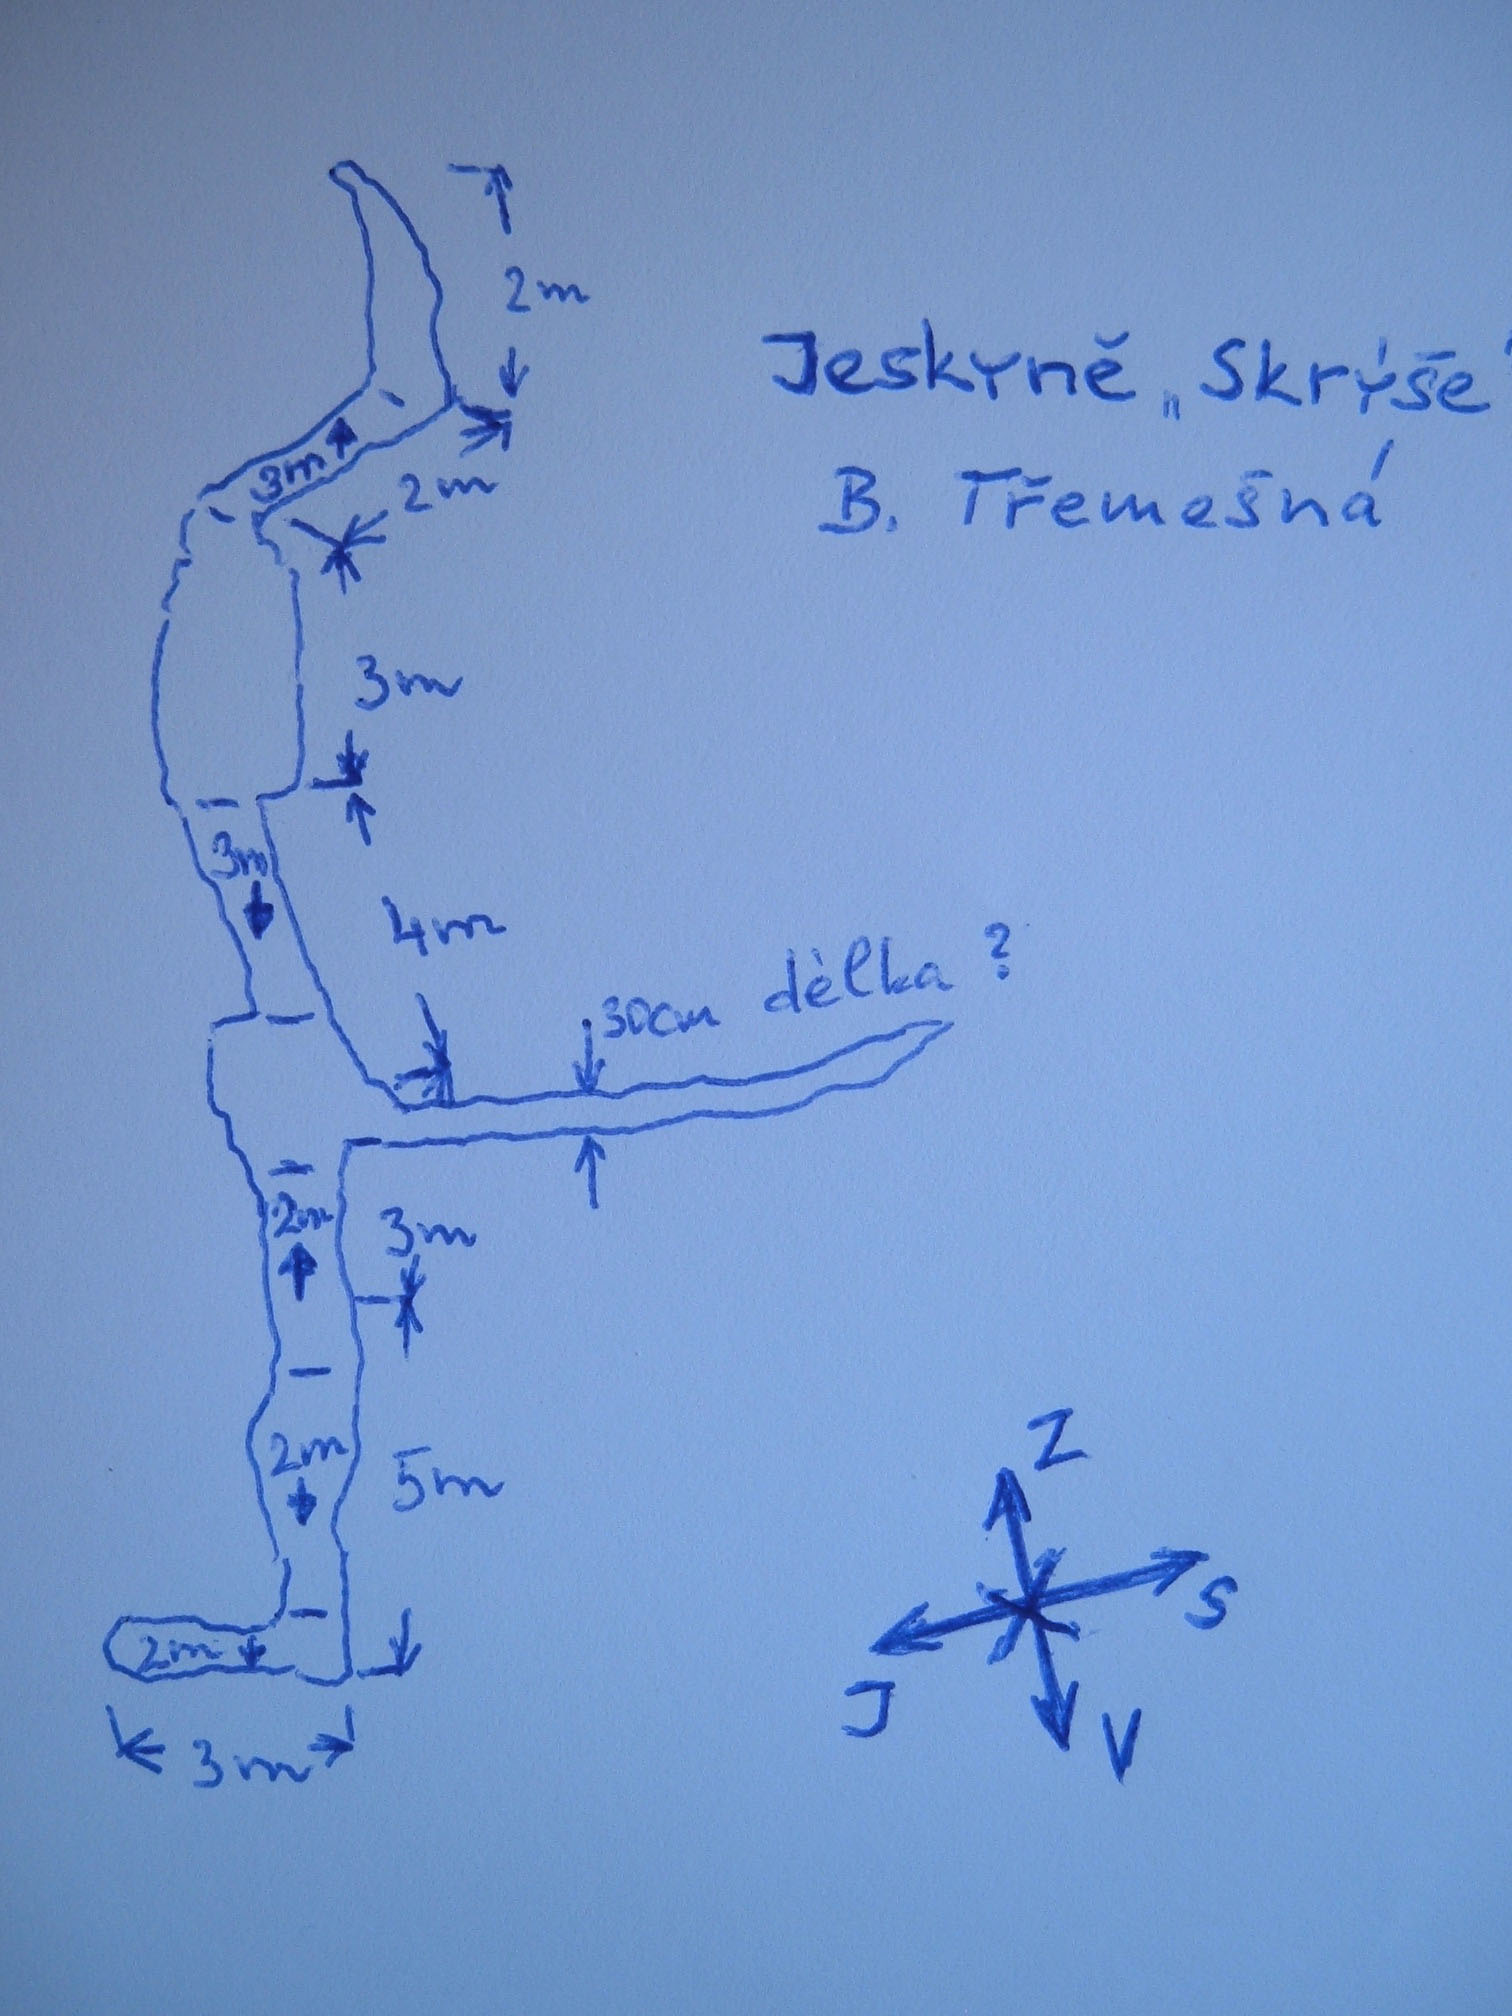 2m
Jeskyně „Skrýše"
B. Třemešná
3m
2m
3m
3m
4m
30cm délka ?
2m
3m
2m
5m
Z
S
J
V
2m
3m